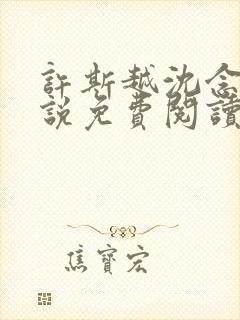 許斯越沈念
說免費閱讀
焦寶宏